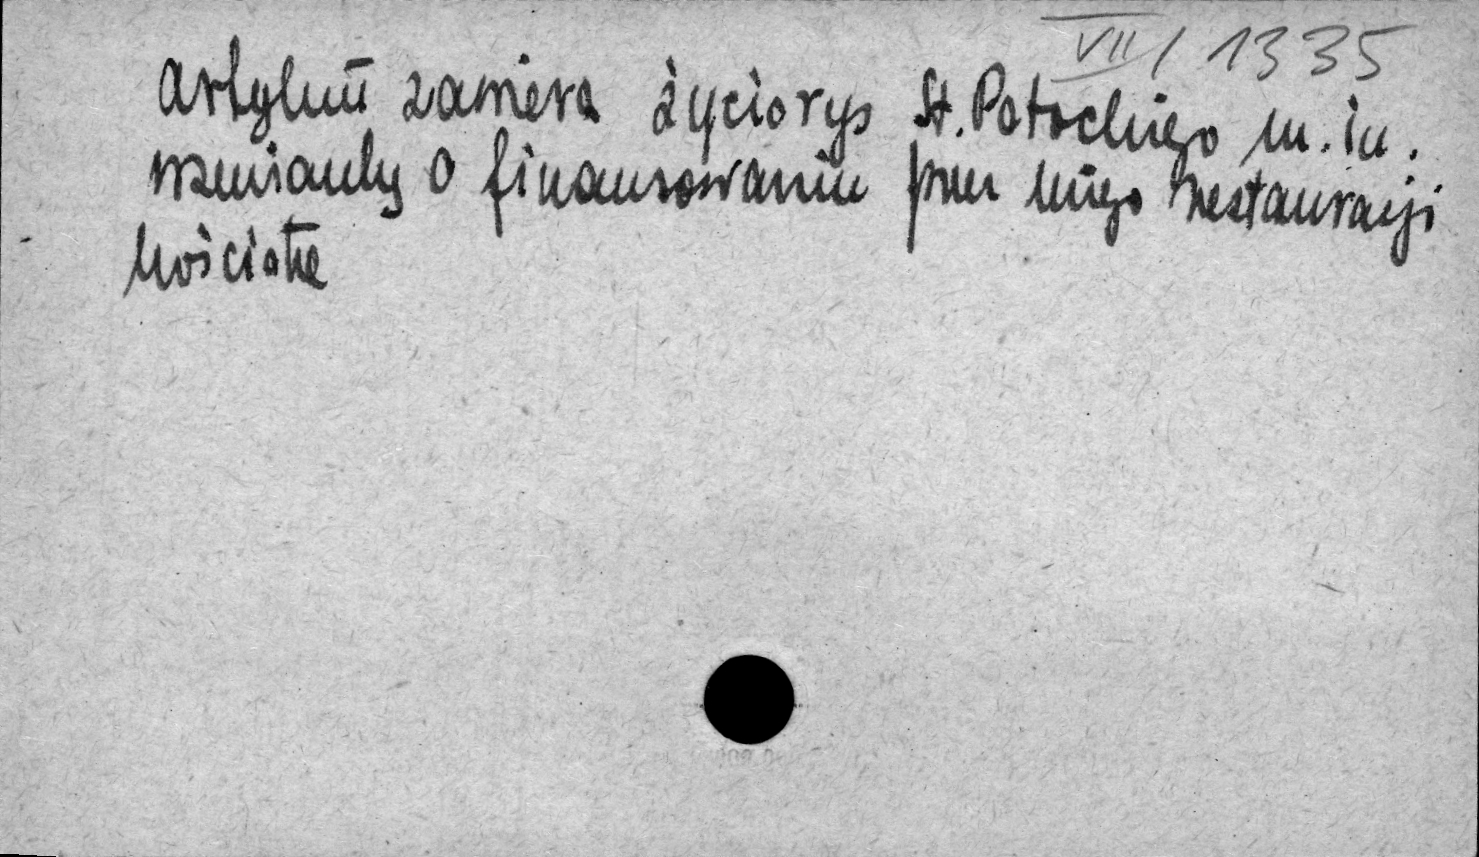 VII/1335
artykuł zawiera życiorys St. Potockiego m.in.
wzmianky o finansowaniu przez niego restauracji
kościoła